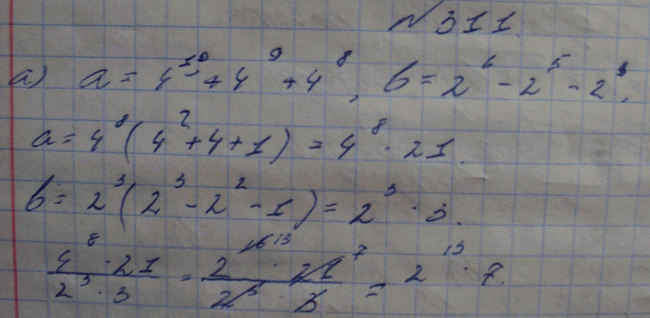 №311.
а) a = 4^10 + 4^9 + 4^8, b = 2^6 - 2^5 - 2^3.
a = 4^8 (4^2 + 4 + 1) = 4^8 · 21.
b = 2^3 (2^3 - 2^2 - 1) = 2^3 · 3.
(4^8 · 21)/(2^3 · 3) = (2^16 13 · 21 7)/(2^3 · 3) = 2^13 · 7.